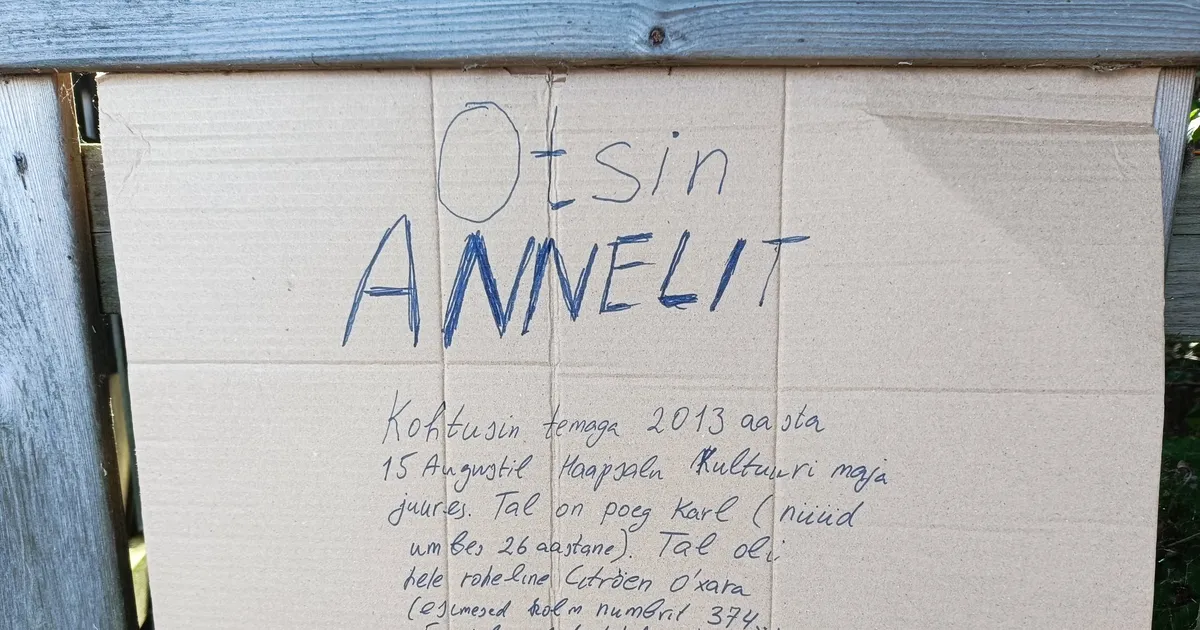 Otsin
ANNELIT
Kohtusin temaga 2013 aasta
15 Augustil Haapsalu Kultuuri maja
juures. Tal on poeg Karl (nüüd
umbes 26 aastane). Tal oli
hele roheline Citröen O'xara
(esimesed kolm numbrit 374